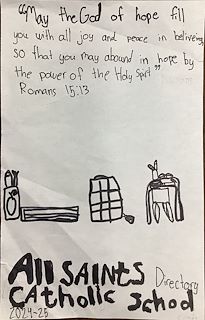 “May the God of hope fill
you with all joy and peace in believing,
so that you may abound in hope by
the power of the Holy Spirit”
Romans 15:13
All SAINTS
Directory
CAtholic School
2024-25